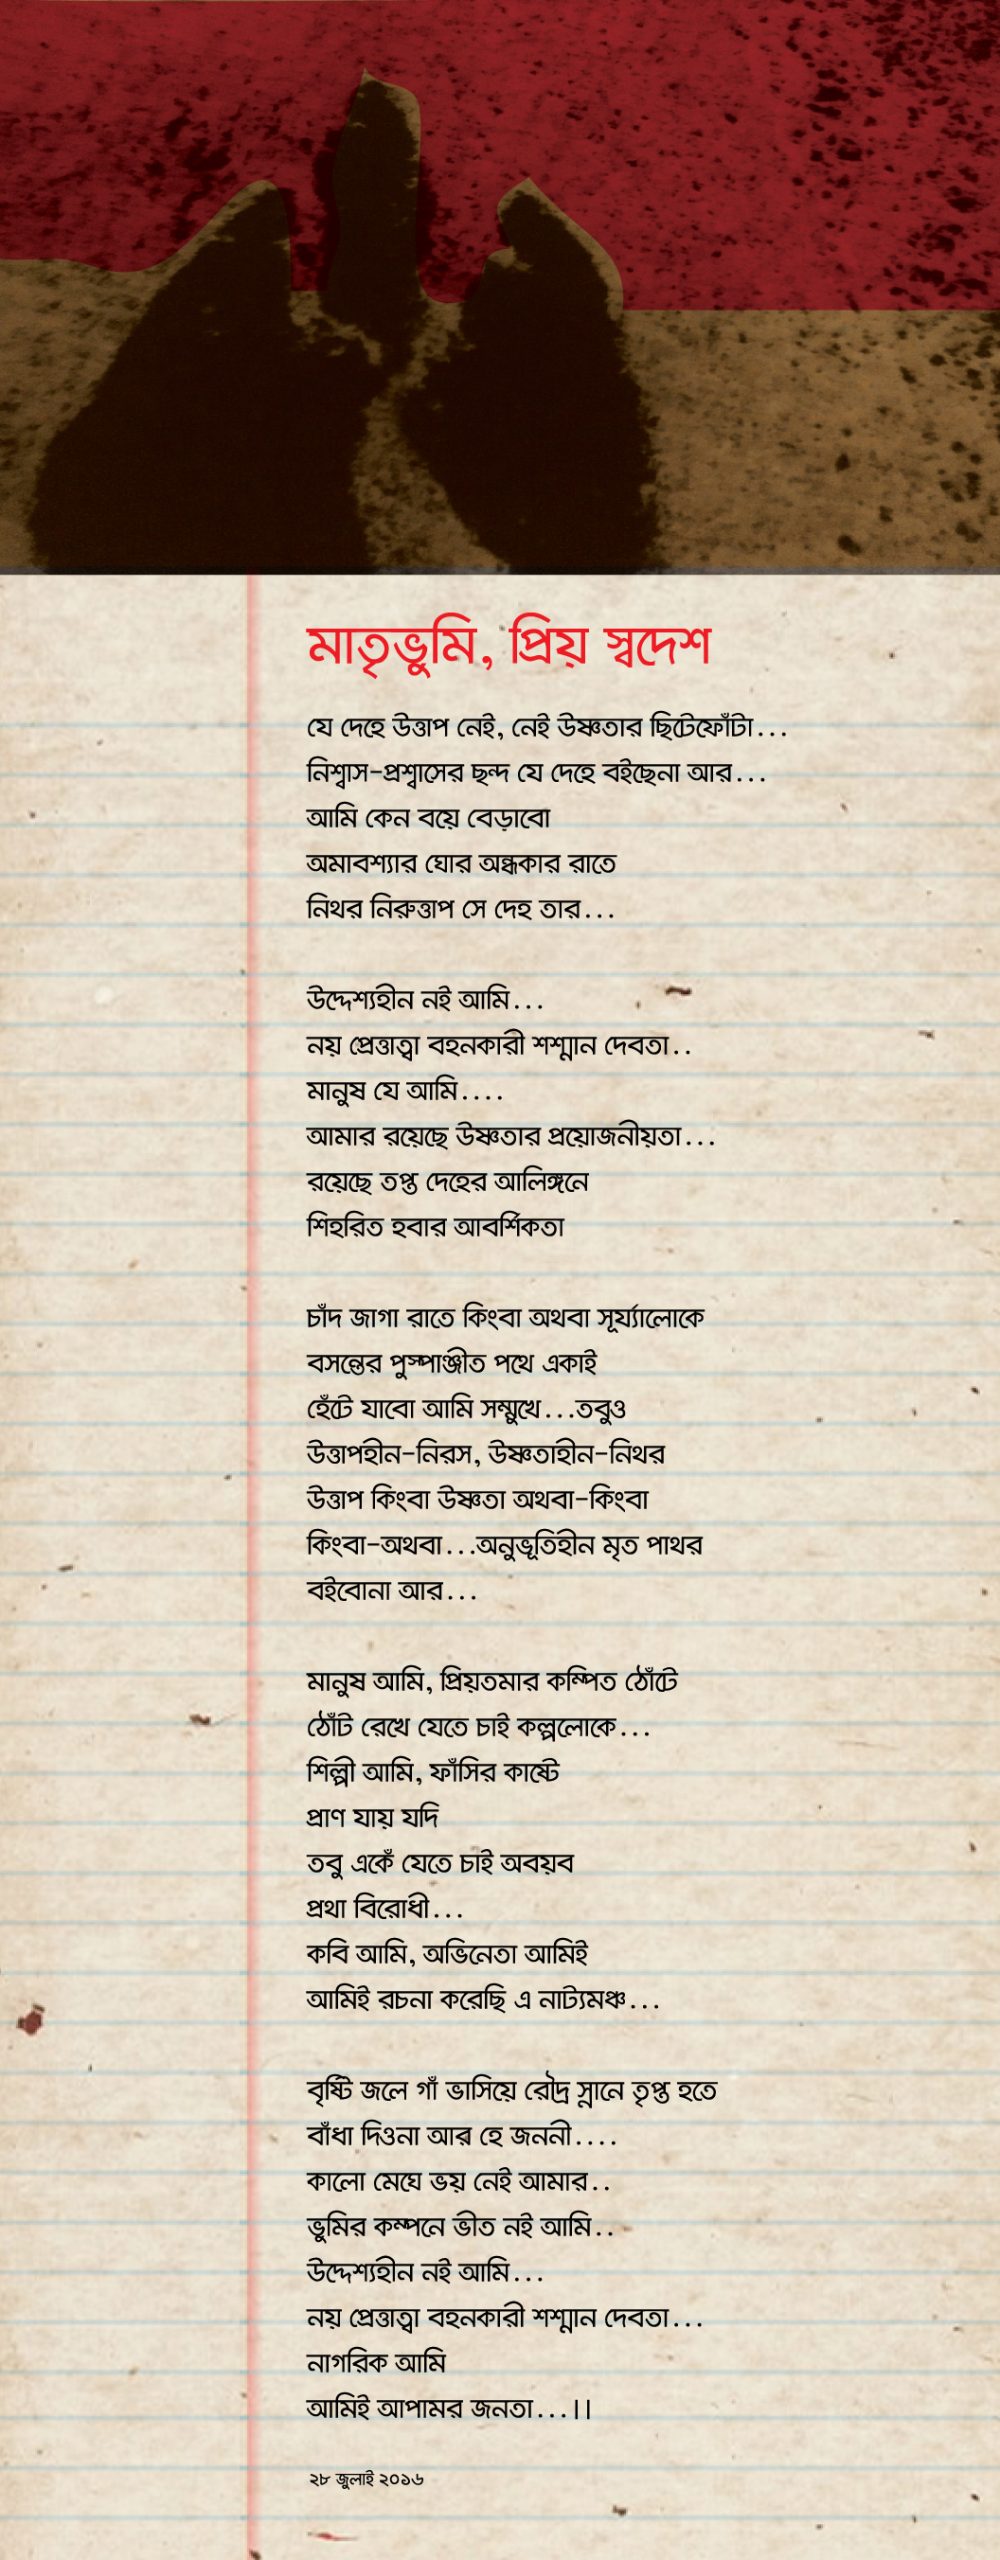 মাতৃভুমি, প্রিয় স্বদেশ
যে দেহে উত্তাপ নেই, নেই উষ্ণতার ছিটেফোঁটা...
নিশ্বাস-প্রশ্বাসের ছন্দ যে দেহে বইছেনা আর...
আমি কেন বয়ে বেড়াবো
অমাবশ্যার ঘোর অন্ধকার রাতে
নিথর নিরুত্তাপ সে দেহ তার...
উদ্দেশ্যহীন নই আমি...
নয় প্রেত্তাত্বা বহনকারী শশ্মান দেবতা..
মানুষ যে আমি....
আমার রয়েছে উষ্ণতার প্রয়োজনীয়তা...
রয়েছে তপ্ত দেহের আলিঙ্গনে
শিহরিত হবার আবর্শিকতা
চাঁদ জাগা রাতে কিংবা অথবা সূর্য্যালোকে
বসন্তের পুস্পাঞ্জীত পথে একাই
হেঁটে যাবো আমি সম্মুখে...তবুও
উত্তাপহীন-নিরস, উষ্ণতাহীন-নিথর
উত্তাপ কিংবা উষ্ণতা অথবা-কিংবা
কিংবা-অথবা...অনুভূতিহীন মৃত পাথর
বইবোনা আর...
মানুষ আমি, প্রিয়তমার কম্পিত ঠোঁটে
ঠোঁট রেখে যেতে চাই কল্পলোকে...
শিল্পী আমি, ফাঁসির কাষ্টে
প্রাণ যায় যদি
তবু একেঁ যেতে চাই অবয়ব
প্রথা বিরোধী...
কবি আমি, অভিনেতা আমিই
আমিই রচনা করেছি এ নাট্যমঞ্চ...
বৃষ্টি জলে গাঁ ভাসিয়ে রৌদ্র স্নানে তৃপ্ত হতে
বাঁধা দিওনা আর হে জননী....
কালো মেঘে ভয় নেই আমার..
ভুমির কম্পনে ভীত নই আমি..
উদ্দেশ্যহীন নই আমি...
নয় প্রেত্তাত্বা বহনকারী শশ্মান দেবতা...
নাগরিক আমি
আমিই আপামর জনতা...।।
২৮ জুলাই ২০১৬